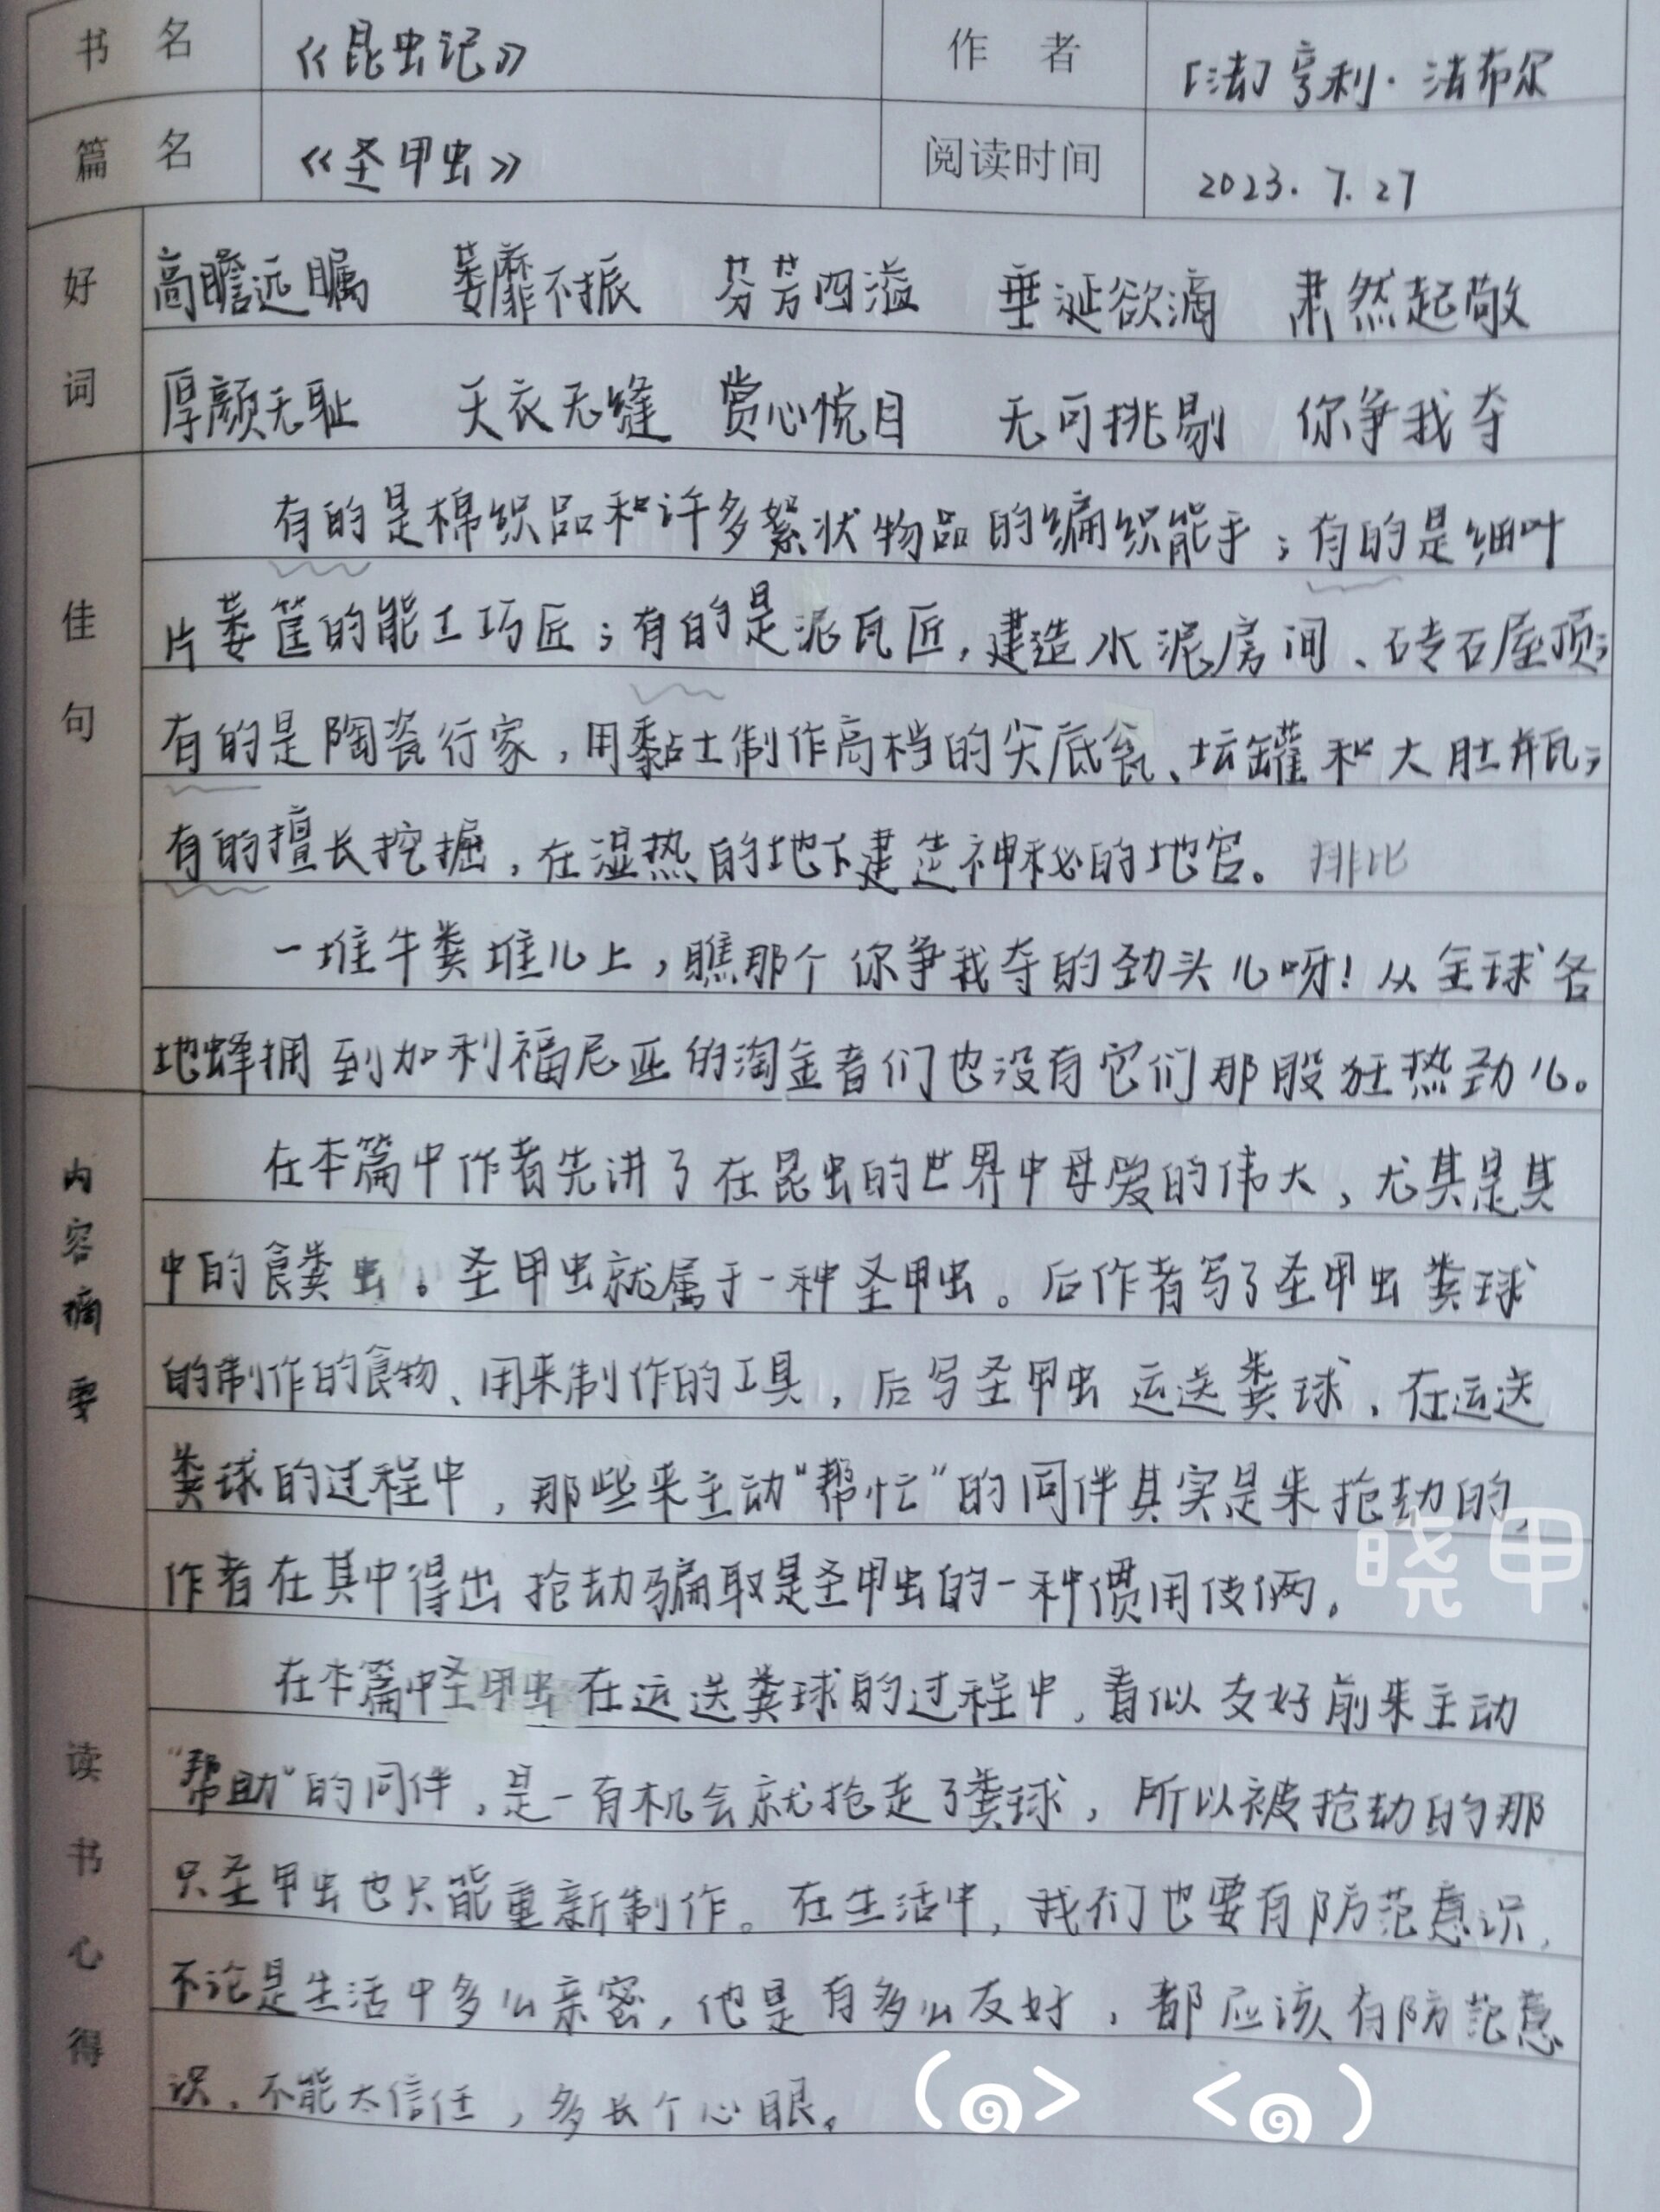 书名 《昆虫记》 作者 「法」亨利·法布尔
篇名 《圣甲虫》 阅读时间 2023.7.27
好词
高瞻远瞩 萎靡不振 芬芳四溢 垂涎欲滴 肃然起敬
厚颜无耻 天衣无缝 赏心悦目 无可挑剔 你争我夺
佳句
有的是棉织品和许多絮状物品的编织能手；有的是细叶
片萎筐的能工巧匠；有的是泥瓦匠，建造水泥房间、砖石屋顶；
有的是陶瓷行家，用黏土制作高档的尖底瓮、坛罐和大肚瓶；
有的擅长挖掘，在湿热的地下建造神秘的地宫。 排比
一堆牛粪堆儿上，瞧那个你争我夺的劲头儿呀！从全球各
地蜂拥到加利福尼亚的淘金者们也没有它们那股狂热劲儿。
内容摘要
在本篇中作者先讲了在昆虫的世界中母爱的伟大，尤其是其
中的食粪虫。圣甲虫就属于一种圣甲虫。后作者写了圣甲虫粪球
的制作的食物、用来制作的工具，后写圣甲虫运送粪球，在运送
粪球的过程中，那些来主动“帮忙”的同伴其实是来抢劫的，
作者在其中得出抢劫骗取是圣甲虫的一种惯用伎俩。
晓甲
读书心得
在本篇中圣甲虫在运送粪球的过程中，看似友好前来主动
“帮助”的同伴，是一有机会就抢走了粪球，所以被抢劫的那
只圣甲虫也只能重新制作。在生活中，我们也要有防范意识，
不论是生活中多么亲密，他是有多么友好，都应该有防范意
识，不能太信任，多长个心眼。